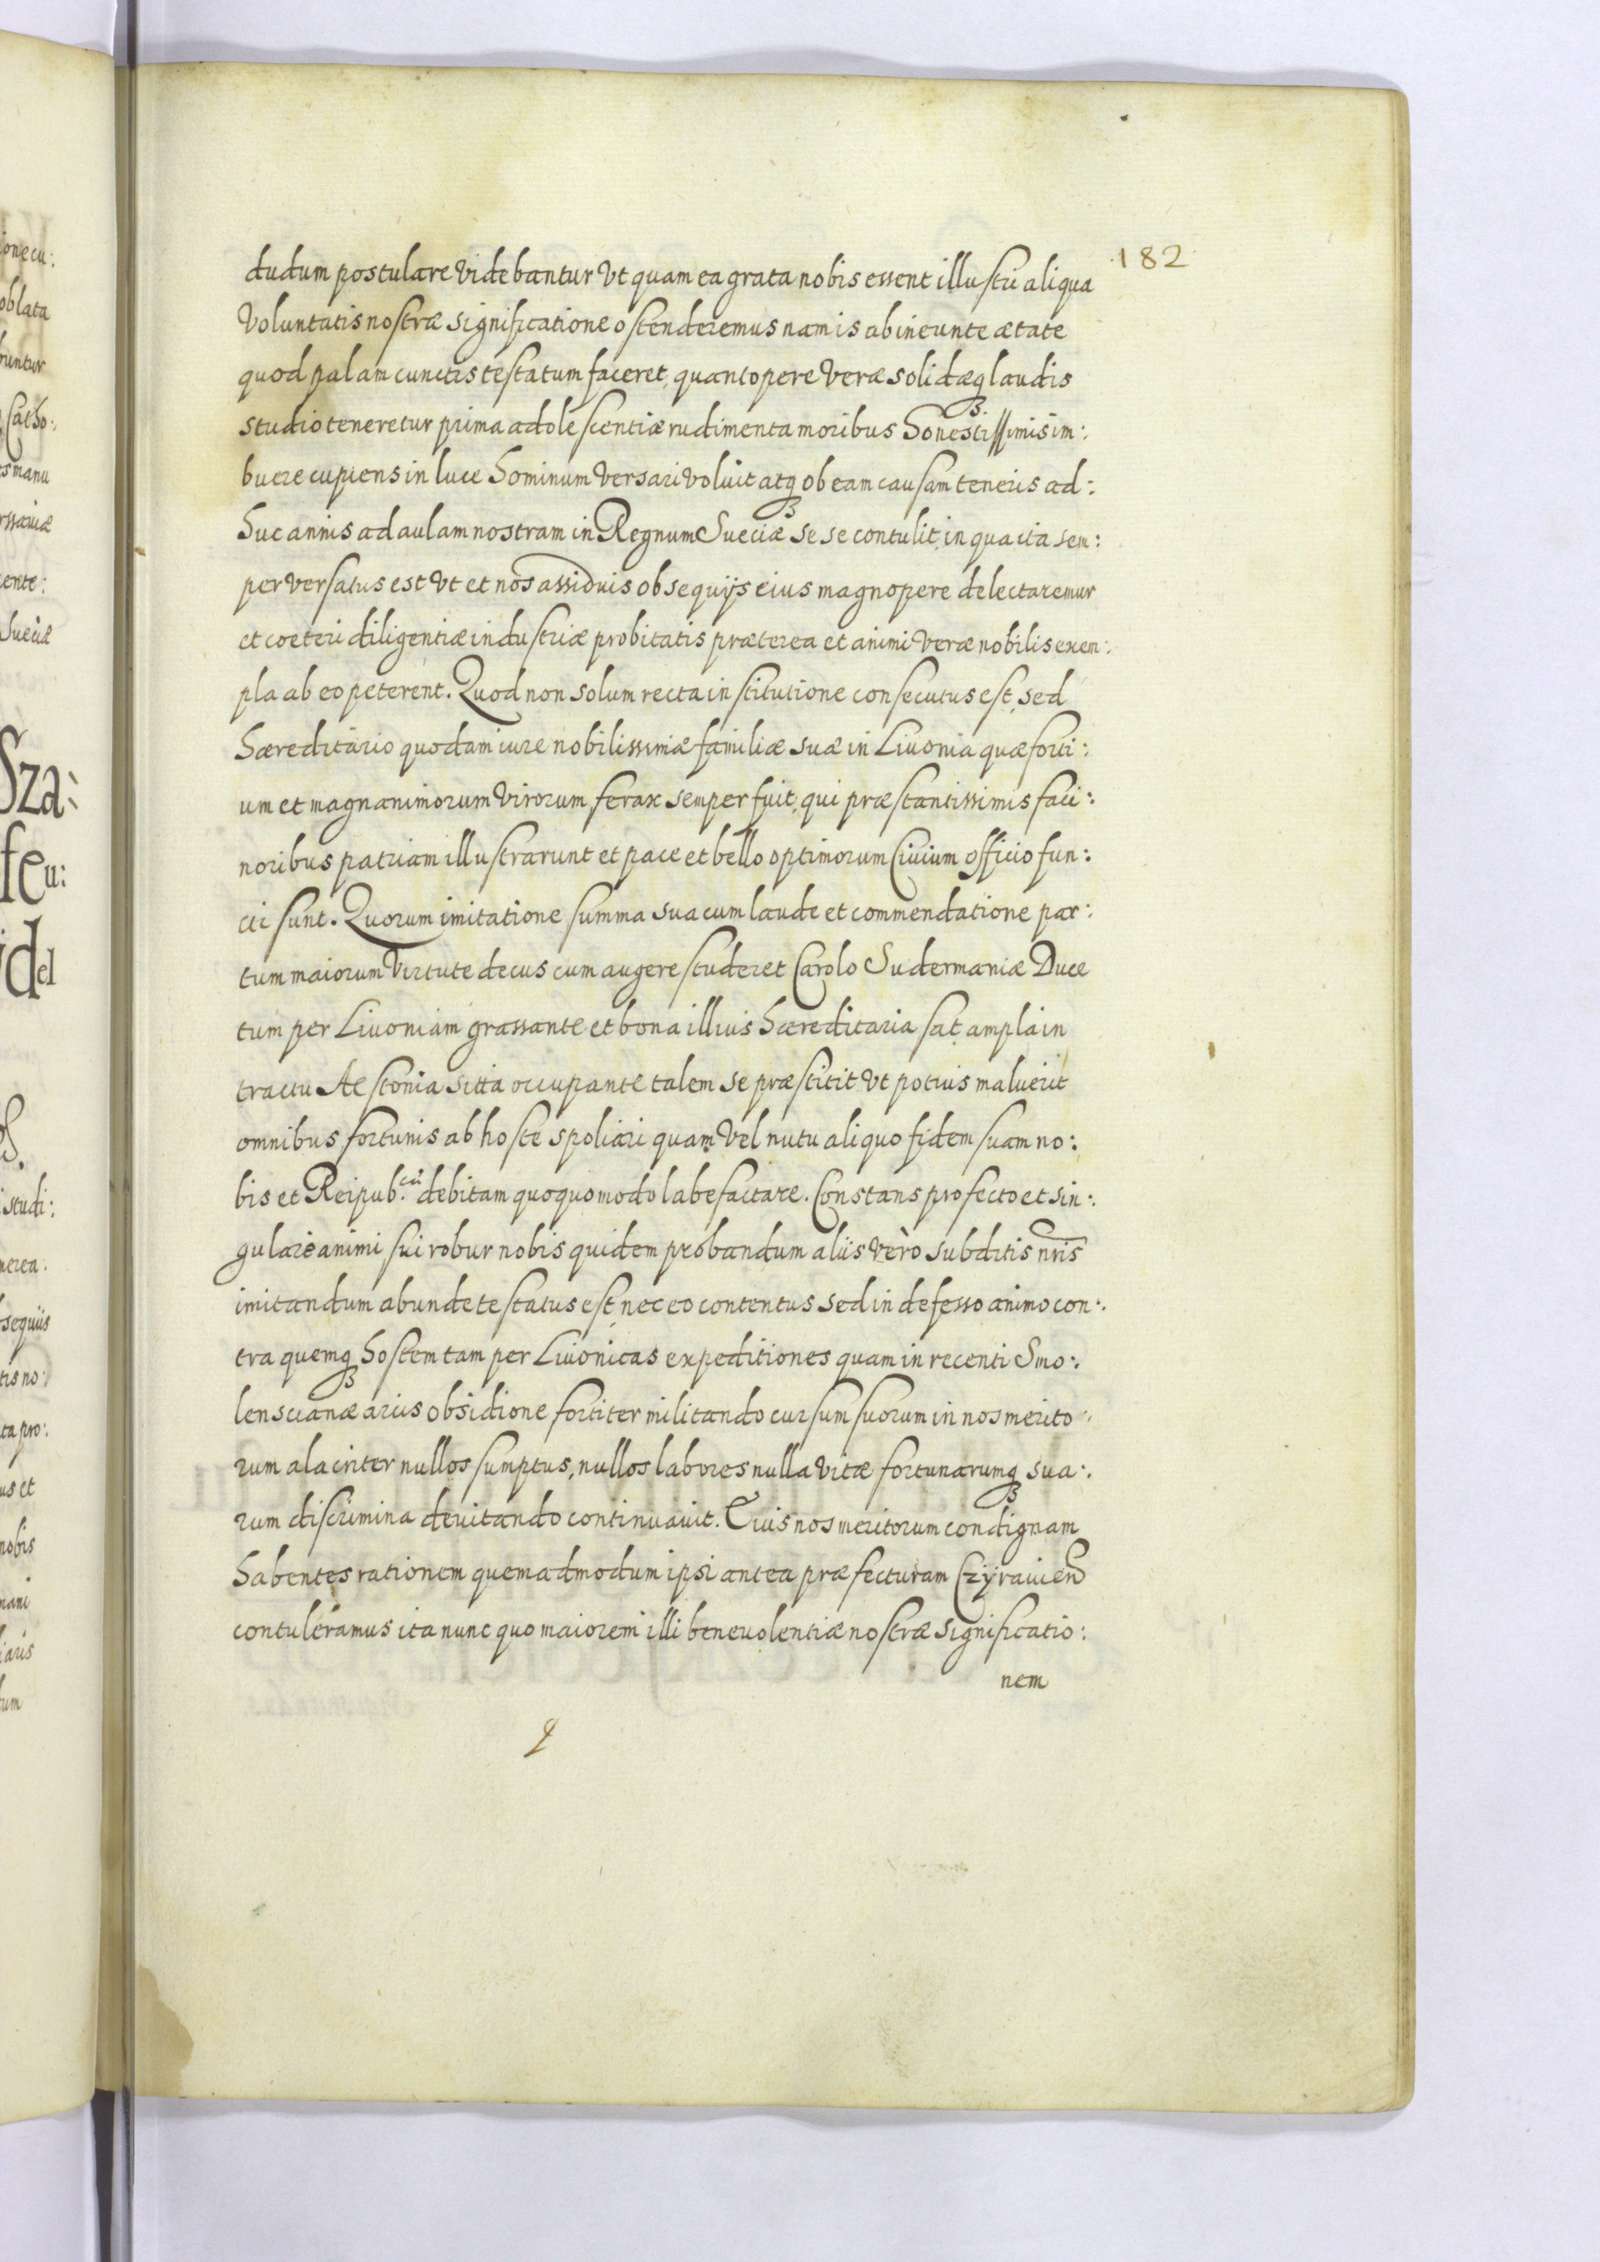 182
dudum postulare videbantur Vt quam ea grata nobis essent illustri aliqua
Voluntatis nostræ significatione ostenderemus nam is ab ineunte ætate
quod palam cunctis testatum faceret, quantopere veræ solidæq3 laudis
studio teneretur prima adolescentiæ rudimenta moribus honestissimis im:
buere cupiens in luce hominum versari voluit atq3 ob eam causam teneris ad:
huc annis ad aulam nostram in Regnum Sueciæ se se contulit, in qua ita sem:
per versatus est Vt et nos assiduis obsequijs eius magnopere delectaremur
et coeteri diligentiæ industriæ probitatis præterea et animi veræ nobilis exem:
pla ab eo peterent. Quod non solum recta institutione consecutus est, sed
hæreditario quodam iure nobilissimæ familiæ suæ in Livonia quæ forti:
um et magnanimorum virorum ferax semper fuit, qui præstantissimis faci:
noribus patriam illustrarunt et pace et bello optimorum Civium officio fun:
cti sunt. Quorum imitatione summa sua cum laude et commendatione par:
tum maiorum virtute decus cum augere studeret Carolo Sudermaniæ Duce
tum per Livoniam grassante et bona illius hæreditaria sat ampla in
tractu Aestonia sitta occupante talem se præstitit Vt potius maluerit
omnibus fortunis ab hoste spoliari quam vel nutu aliquo fidem suam no:
bis et Reipub.cæ debitam quoquomodo labefactare. Constans profecto et sin:
gulare animi sui robur nobis quidem probandum aliis verò subditis nris
imitandum abunde testatus est, nec eo contentus sed indefesso animo con:
tra quemq3 hostem tam per Livonicas expeditiones quam in recenti Smo:
lenscianæ arcis obsidione fortiter militando cursum suorum in nos merito:
rum alacriter nullos sumptus, nullos labores nulla vitæ fortunarumq3 sua:
rum discrimina devitando continuavit. Cuis nos meritorum condignam
habentes rationem quemadmodum ipsi antea præfecturam Czyravien
contuleramus ita nunc quo maiorem illi benevolentiæ nostræ significatio:
nem
ionecu:
oblata
buntur
Catho:
manu
ente:
Sueciæ
Sza:
feu:
del
studi:
merea:
sequiis
tis no:
ta pro:
us et
nobis
mani
iaris
tum